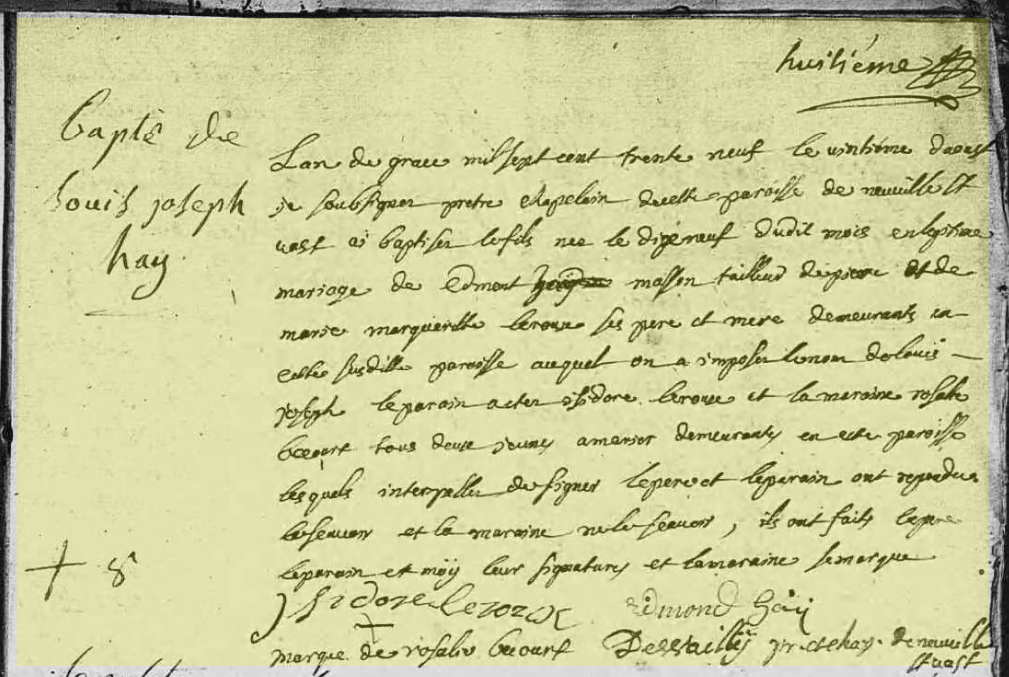 huitiéme
Bapte de
Louis joseph
hay
Lan de grace mil sept cent trente neuf le vintiéme daoust
je soubsigner pretre chapelain decette paroisse de neuville st
vast ai baptiser le fils nee le dixneuf dudit mois en legitime
mariage de Edmont masson tailleur depierre et de
marie margueritte leroux ses pere et mere demeurants en
cette susditte paroisse auquel on a imposer lenom delouis
joseph le parain a eter isidore leroux et la maraine rosalie
becourt tous deux jeunes amarier demeurants en cette paroisse
lesquels interpeller de signer lepere et leparain ont repondus
lesçavoir et la maraine ne le sçavoir, ils ont faits lepere
leparain et moÿ leur signatures et lamaraine samarque
+ 8e
jsidore leroux Edmond haÿ
marque de rosalie becourt pr et chap. de neuville
st vast